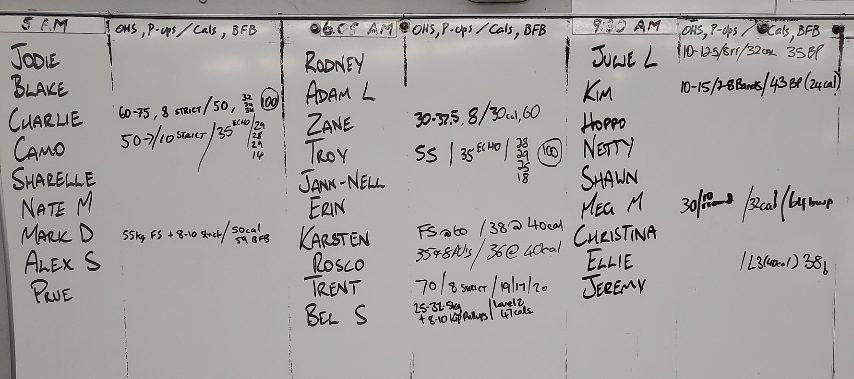 5 AM
OHS, P-ups/Cals, BFB
JODIE
BLAKE
CHARLIE
60-75, 8 STRICT/50,
100
CAMO
50-7/10 STRICT/35 ECHO/29
28
29
14
SHARELLE
NATE M
MARK D
55kg FS + 8-10 Strict/50cal
59 BFB
ALEX S
PRUE
06:05 AM
OHS, P-ups/Cals, BFB
RODNEY
ADAM L
ZANE
30-37.5, 8/30cal, 60
TROY
55 / 35 ECHO / 28
29
25
18
100
JANN-NELL
ERIN
KARSTEN
FS @ 60 / 38 @ 40cal
ROSCO
/ 36 @ 40cal
TRENT
70/8 STRICT/19/17/20
BEL S
25-32.5kg
+ 8-10 Kip Pullups
Level 2
47 cals
9:30 AM
OHS, P-ups/Cals, BFB
JULIE L
35 BP
KIM
10-15/7-8 Bands/43 BP (24cal)
HOPPO
NETTY
SHAWN
MEG M
30/10 /32cal /
CHRISTINA
ELLIE
/L3(40cal) 38
JEREMY